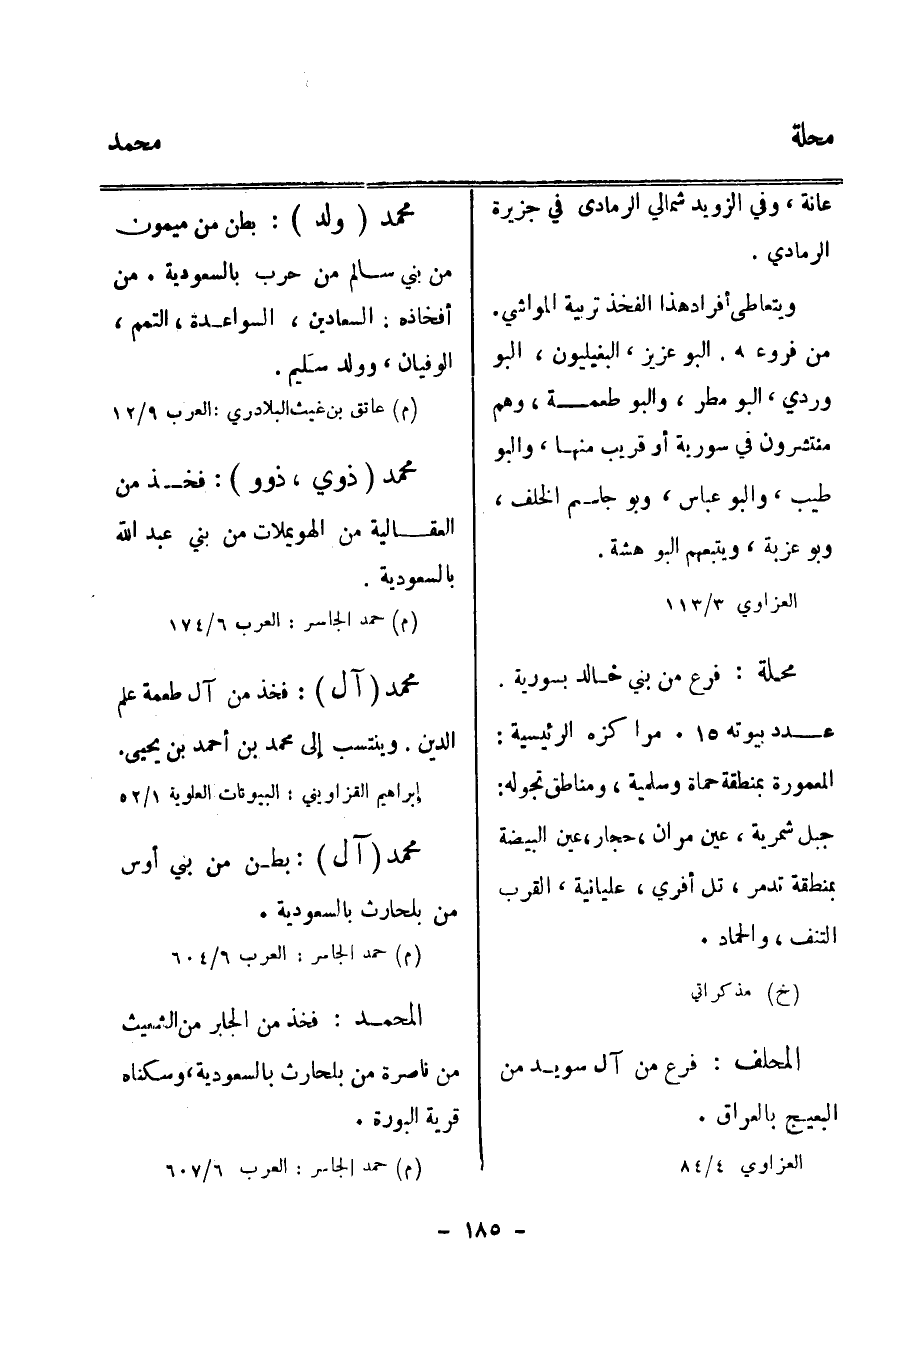 محلة
محمد
عانة ، وفي الزويد شمالي الرمادى في جزيرة
الرمادي .
ويتعاطى أفرادهذا الفخذ تربية المواشي.
من فروع ه . البو عزيز ، البفيليون ، البو
وردي ، البو مطر ، والبو طعمـــة ، وهم
منتشرون في سورية أو قريب منهـا ، والبو
طيب ، والبو عباس ، وبو جاسـم الخلف ،
وبو عزبة ، ويتبعهم البو هشة .
العزاوي ١١٣/٣
محيلة : فرع من بني خـالد بسورية .
عـــدد بيوته ١٥ . مراكزه الرئيسية :
المعمورة بمنطقة حماة وسلمية ، ومناطق تجوله:
جبل شمرية ، عين مران ، حجار، عين البيضة
بمنطقة تدمر ، تل أفري ، عليانية ، القرب
التنف ، والحماد .
(خ) مذكراتي
المحلف : فرع من آل سويـد من
البعيج بالعراق .
العزاوي ٨٤/٤
محمد ( ولد ) : بطن من ميمون
من بني ســالم من حرب بالسعودية . من
أفخاذه : السعادين ، السواعـدة ، التمم ،
الوفيان ، وولد سَليم .
(م) عاتق بن غيث البلادري : العرب ١٢/٩
محمد ( ذوي ، ذوو ) : فخــذ من
العقـــالية من الهويملات من بني عبد الله
بالسعودية .
(م) حمد الجاسر : العرب ١٧٤/٦
محمد (آل) : فخذ من آل طعمة علم
الدين . وينتسب إلى محمد بن أحمد بن يحيى.
إبراهيم القزاويني : البيوتات العلوية ٥٢/١
محمد (آل) : بطـن من بني أوس
من بلحارث بالسعودية .
(م) حمد الجاسر : العرب ٦٠٤/٦
المحمــد : فخذ من الجابر من الشعيث
من ناصرة من بلحارث بالسعودية، وسكناه
قرية البورة .
(م) حمد الجاسر : العرب ٦٠٧/٦
- ١٨٥ -